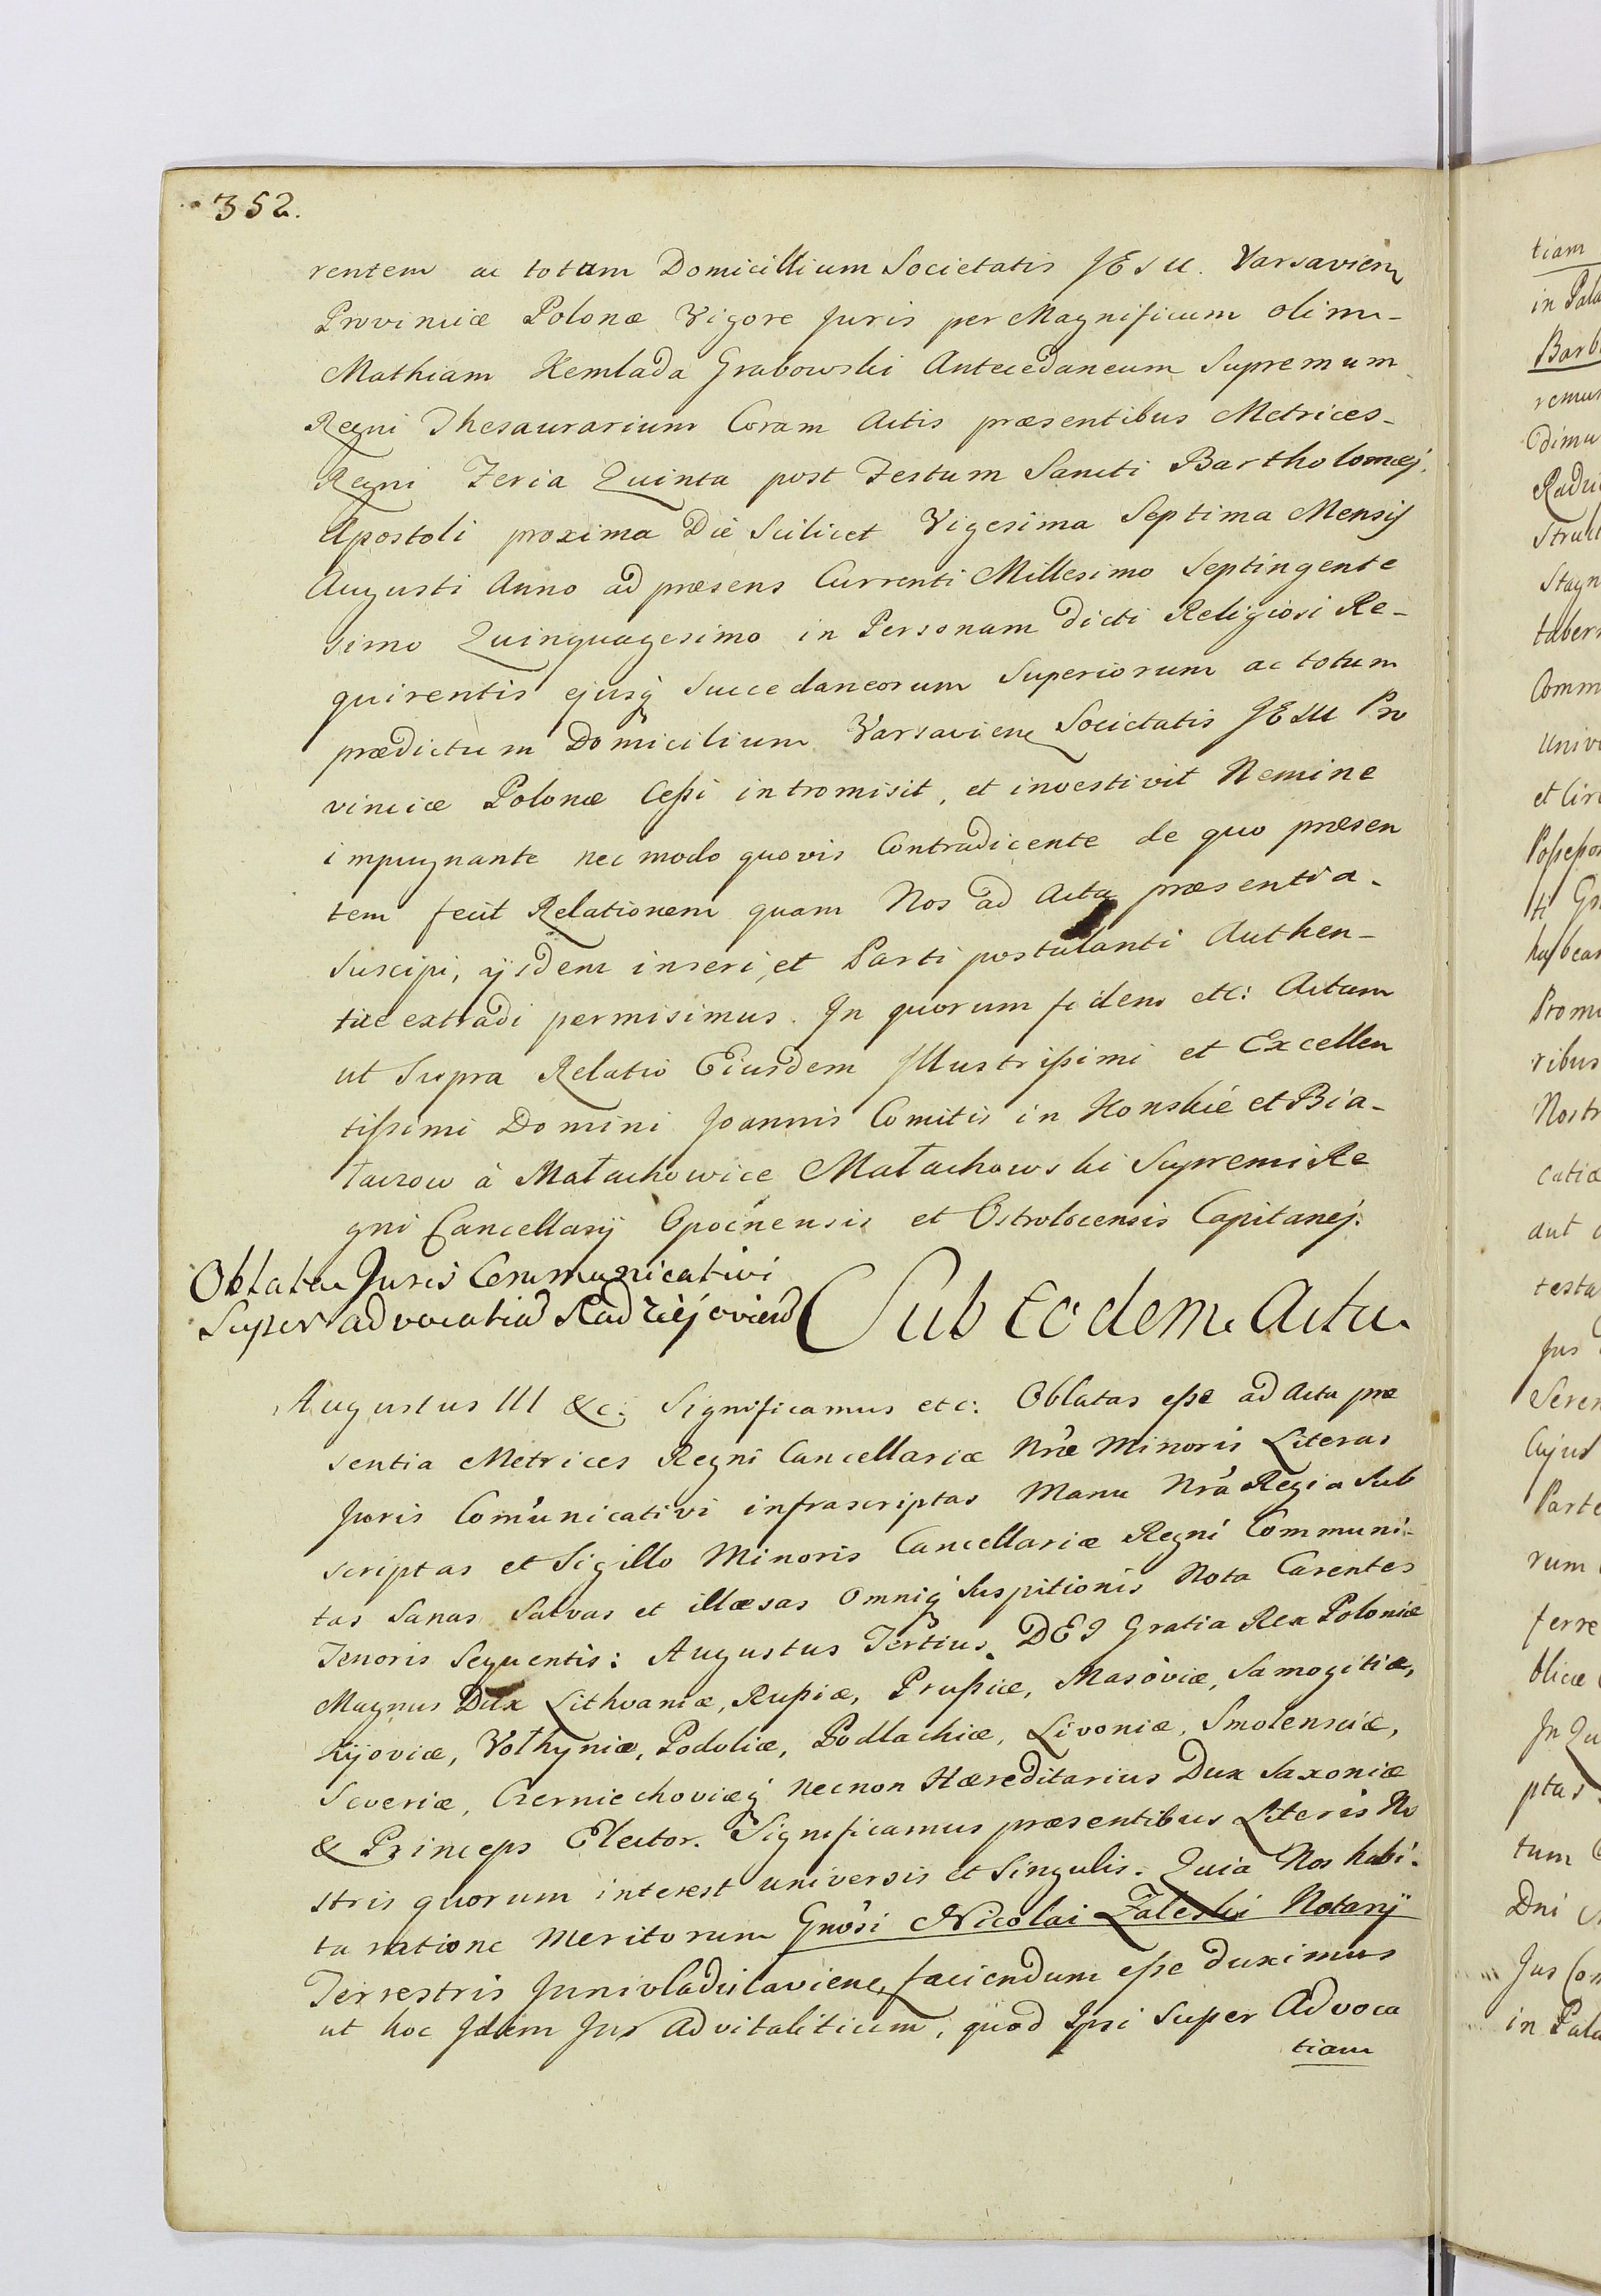 352.
rentem ac totam Domicillium Societatis JESU. Varsavien
Provinciæ Polonæ Vigore Juris per Magnificum olim-
Mathiam Kemlada Grabowski Antecedaneum Supremum
Regni Thesaurarium Coram Actis præsentibus Metrices-
Regni Feria Quinta post Festum Sancti Bartholomæj
Apostoli proxima Die Scilicet Vigesima Septima Mensis
Augusti Anno ad præsens Currenti Millesimo Septingente
simo Quinquagesimo in Personam dicti Religiosi Re-
quirentis ejusq Succedaneorum Superiorum ac totum
prædictum Domicilium Varsavien Societatis JESU Pro
vinciæ Polonæ Cessi intromisit, et investivit Nemine
impugnante nec modo quovis Contradicente de quo præsen
tem fecit Relationem quam Nos ad Acta præsentia-
suscipi, ijsdem inseri, et Parti postulanti Authen-
tice extradi permisimus. In quorum fidem etc: Actum
ut Supra Relatio Eiusdem Illustrissimi et Excellen
tissimi Domini Joannis Comitis in Konskie et Bia-
łaczow à Małachowice Małachowski Supremi Re
gni Cancellarij Opocnensis et Ostrolocensis Capitanej.
Oblata Juris Communicativi
Super advocatia Radziejovien
Sub Eodem Actu.
Augustus III &c: Significamus etc: Oblatas esse ad Acta præ
sentia Metrices Regni Cancellariæ Nræ Minoris Literas
Juris Comunicativi infrascriptas Manu Nra Regia Sub
scriptas et Sigillo Minoris Cancellariæ Regni Communi-
tas Sanas Salvas et illæsas Omniq Suspitionis Nota Carentes
Tenoris Sequentis: Augustus Tertius DEI Gratia Rex Poloniæ
Magnus Dux Lithvaniæ, Russiæ, Prussiæ, Masoviæ, Samogitiæ,
Kijoviæ, Volhyniæ, Podoliæ, Podlachiæ, Livoniæ, Smolensciæ,
Severiæ, Czerniechoviæq necnon Hæreditarius Dux Saxoniæ
& Princeps Elector. Significamus præsentibus Literis No
stris quorum interest universis et Singulis. Quia Nos habi-
ta ratione Meritorum Gnosi Nicolai Zaleski Notarij
Terrestris Junivladislavien, faciendum esse duximus
ut hoc Idem Jus Advitalitium, quod Ipsi Super Advoca
tiam
tiam
in Pala
Barb
remus
dimu
Radzi
Struc
Stagn
tabern
Comm
unive
et Circ
Possess
ti Gn
habean
Promi
ribus
Nostr
catiæ
aut
testa
Jus
Seren
Cujus
Parte
rum
ferre
blicæ
In Qu
ptas
tum
Dni
Jus Com
in Pala